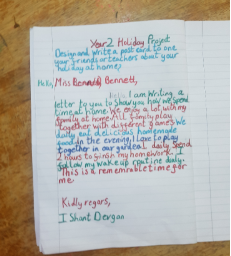 Year 2 Holiday Project
Design and write a post card to one
your friends or teachers about your
holiday at home.
Hello, Miss Bennett,
I am writing a
letter to you to show you how we spend
time at home. We enjoy a lot with my
family at home. All family play
together with different games. We
daily eat delicious homemade
food. In the evening, I love to play
together in our garden. I daily spend
2 hours to finish my homework. I
follow my wake up routine daily.
This is a remembrable time for
me.
Kidly regars,
I Shant